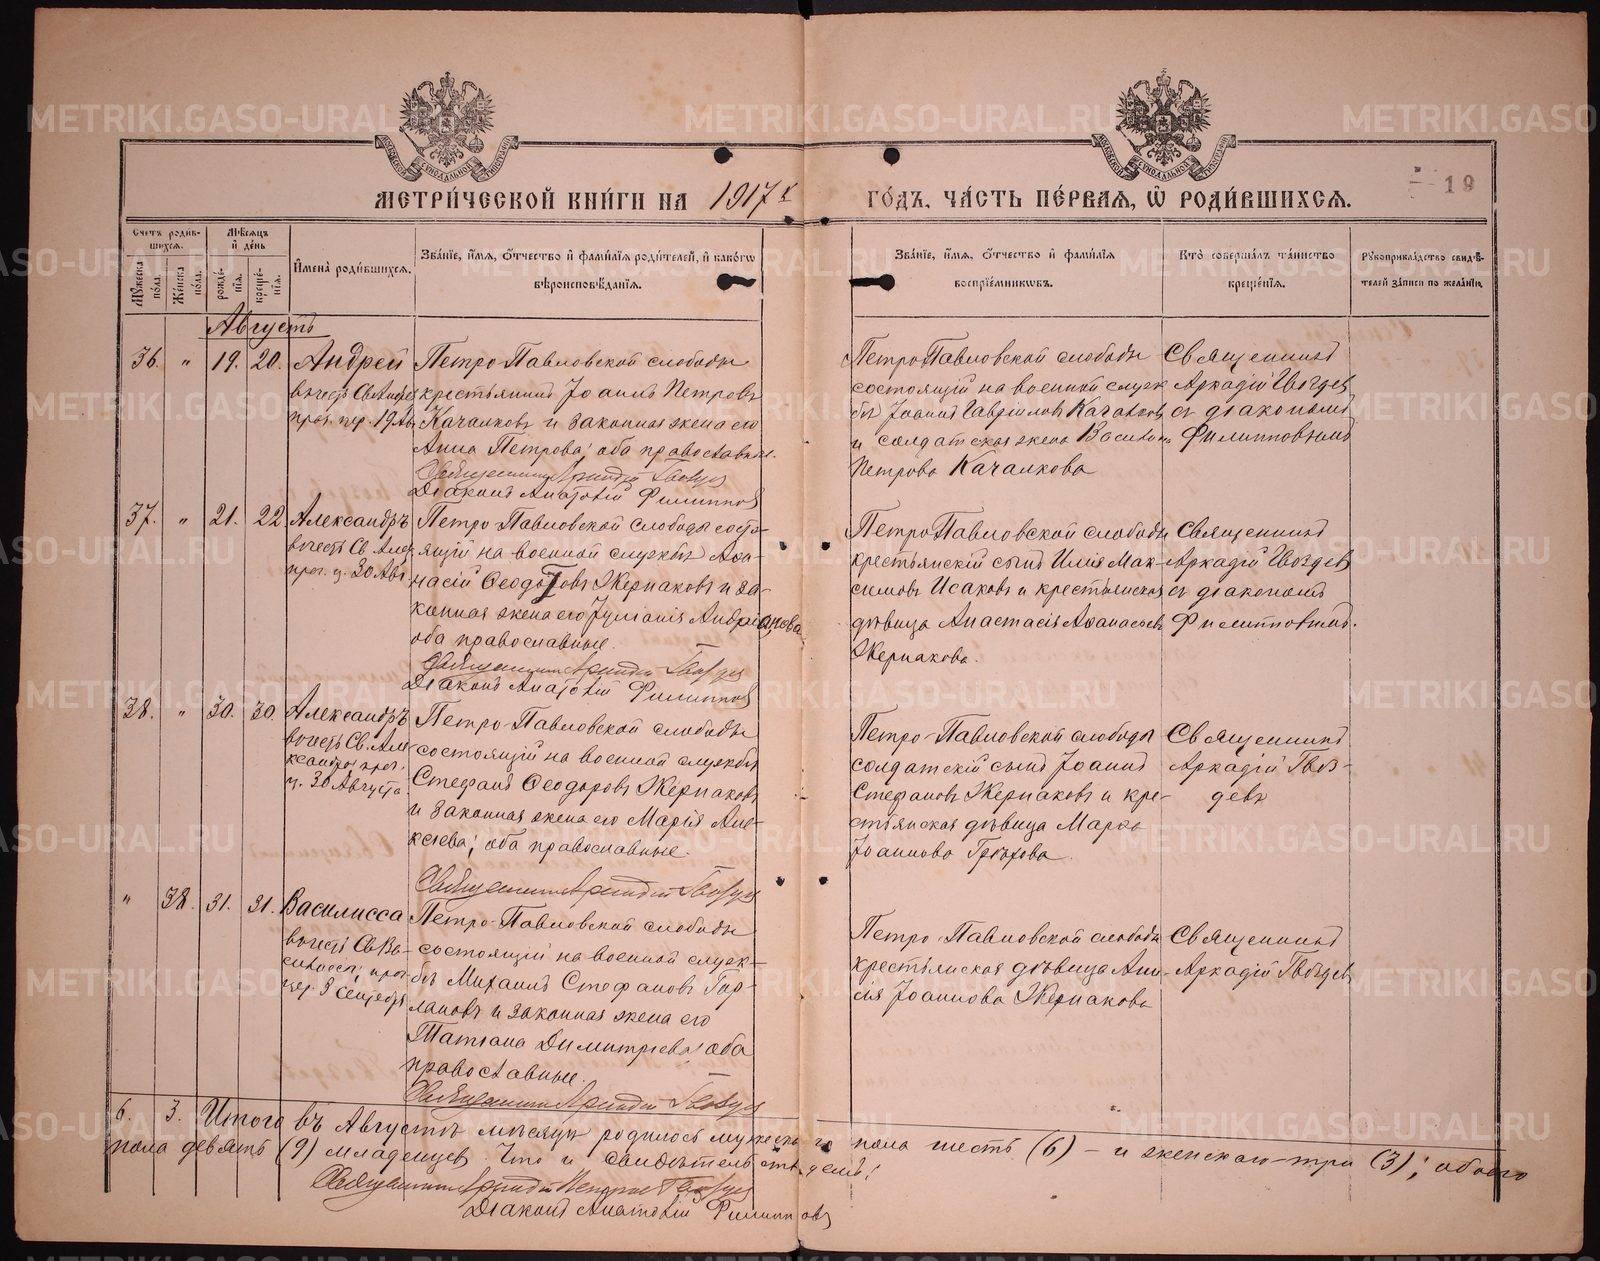 МЕТРИ́ЧЕСКОЙ КНИ́ГИ НА 1917 г
ГО́ДЪ, ЧА́СТЬ ПЕ́РВАѦ, Ѡ РОДИ́ВШИХСѦ.
19
Счетъ роди́в-
шихсѧ.
Мѣ́сѧцъ
и҆ де́нь
И҆мена̀ роди́вшихсѧ.
Зва́нїе, и҆́мѧ, ѻ҆́тчество и҆ фами́лїѧ роди́телей, и҆ како́гѡ
вѣроисповѣ́данїѧ.
Зва́нїе, и҆́мѧ, ѻ҆́тчество и҆ фами́лїѧ
воспрїе́мникѡвъ.
Кто̀ соверша́лъ та́инство
креще́нїѧ.
Рꙋкоприкла́дство свидѣ́-
телей за́писи по жела́нїю.
Мꙋ́жеска
по́ла.
Же́нска
по́ла.
рожде́-
нїѧ.
креще́-
нїѧ.
Августъ
36. " 19. 20. Андрей
въ честь Св. Андрея
праз. 19 Ав.
Петро-Павловской слободы
крестьянинъ Іоаннъ Петровъ
Качалковъ и законная жена его
Анна Петрова; оба православные.
Священникъ Аркадій Гвоздев
Діаконъ Анатолій Филиппов
Петро-Павловской слободы
состоящій на военной служ
бѣ Іоаннъ Гавріиловъ Качалков
и солдатская жена
Петрова Качалкова
Священникъ
Аркадій Гвоздев
съ діакономъ
Филипповымъ
37. " 21. 22. Александръ
въ честь Св. Алек
праз. 30 Авг.
Петро-Павловской слободы состо-
ящій на военной службѣ Аѳа-
насій Ѳеодотовъ Жернаковъ и за-
конная жена его Іуліанія Андріанова
оба православные.
Священникъ Аркадій Гвоздев
Діаконъ Анатолій Филиппов
Петро-Павловской слободы
крестьянскій сынъ Илія Мак-
симовъ Исаковъ и крестьянская
дѣвица Анастасія Аѳанасьева
Жернакова.
Священникъ
Аркадій Гвоздев
съ діакономъ
Филипповымъ.
38. " 30. 30. Александръ
въ честь Св. Але-
ксандра праз.
30 Августа.
Петро-Павловской слободы
состоящій на военной службѣ
Стефанъ Ѳеодоровъ Жернаковъ
и законная жена его Марія Але-
ксѣева; оба православные.
Священникъ Аркадій Гвоздев
Петро-Павловской слободы
солдатскій сынъ Іоаннъ
Стефановъ Жернаковъ и кре-
стьянская дѣвица Марѳа
Іоаннова Грѣхова.
Священникъ
Аркадій Гвоз-
девъ
" 38. 31. 31. Василисса
въ честь Св. Ва-
силиссы, праз.
3 Сентября
Петро-Павловской слободы
состоящій на военной служ-
бѣ Михаилъ Стефановъ Гор-
лановъ и законная жена его
Татіана Димитріева; оба
православные.
Священникъ Аркадій Гвоздев
Петро-Павловской слободы
крестьянская дѣвица Ани-
сія Іоаннова Жернакова
Священникъ
Аркадій Гвоздев
6. 3. Итого въ Августѣ мѣсяцѣ родилось мужескаго пола шесть (6) – и женскаго – три (3); обоего
пола девять (9) младенцев. Что и свидѣтельствуемъ:
Священникъ Аркадій Гвоздев
Діаконъ Анатолій Филипповъ
METRIKI.GASO-URAL.RU